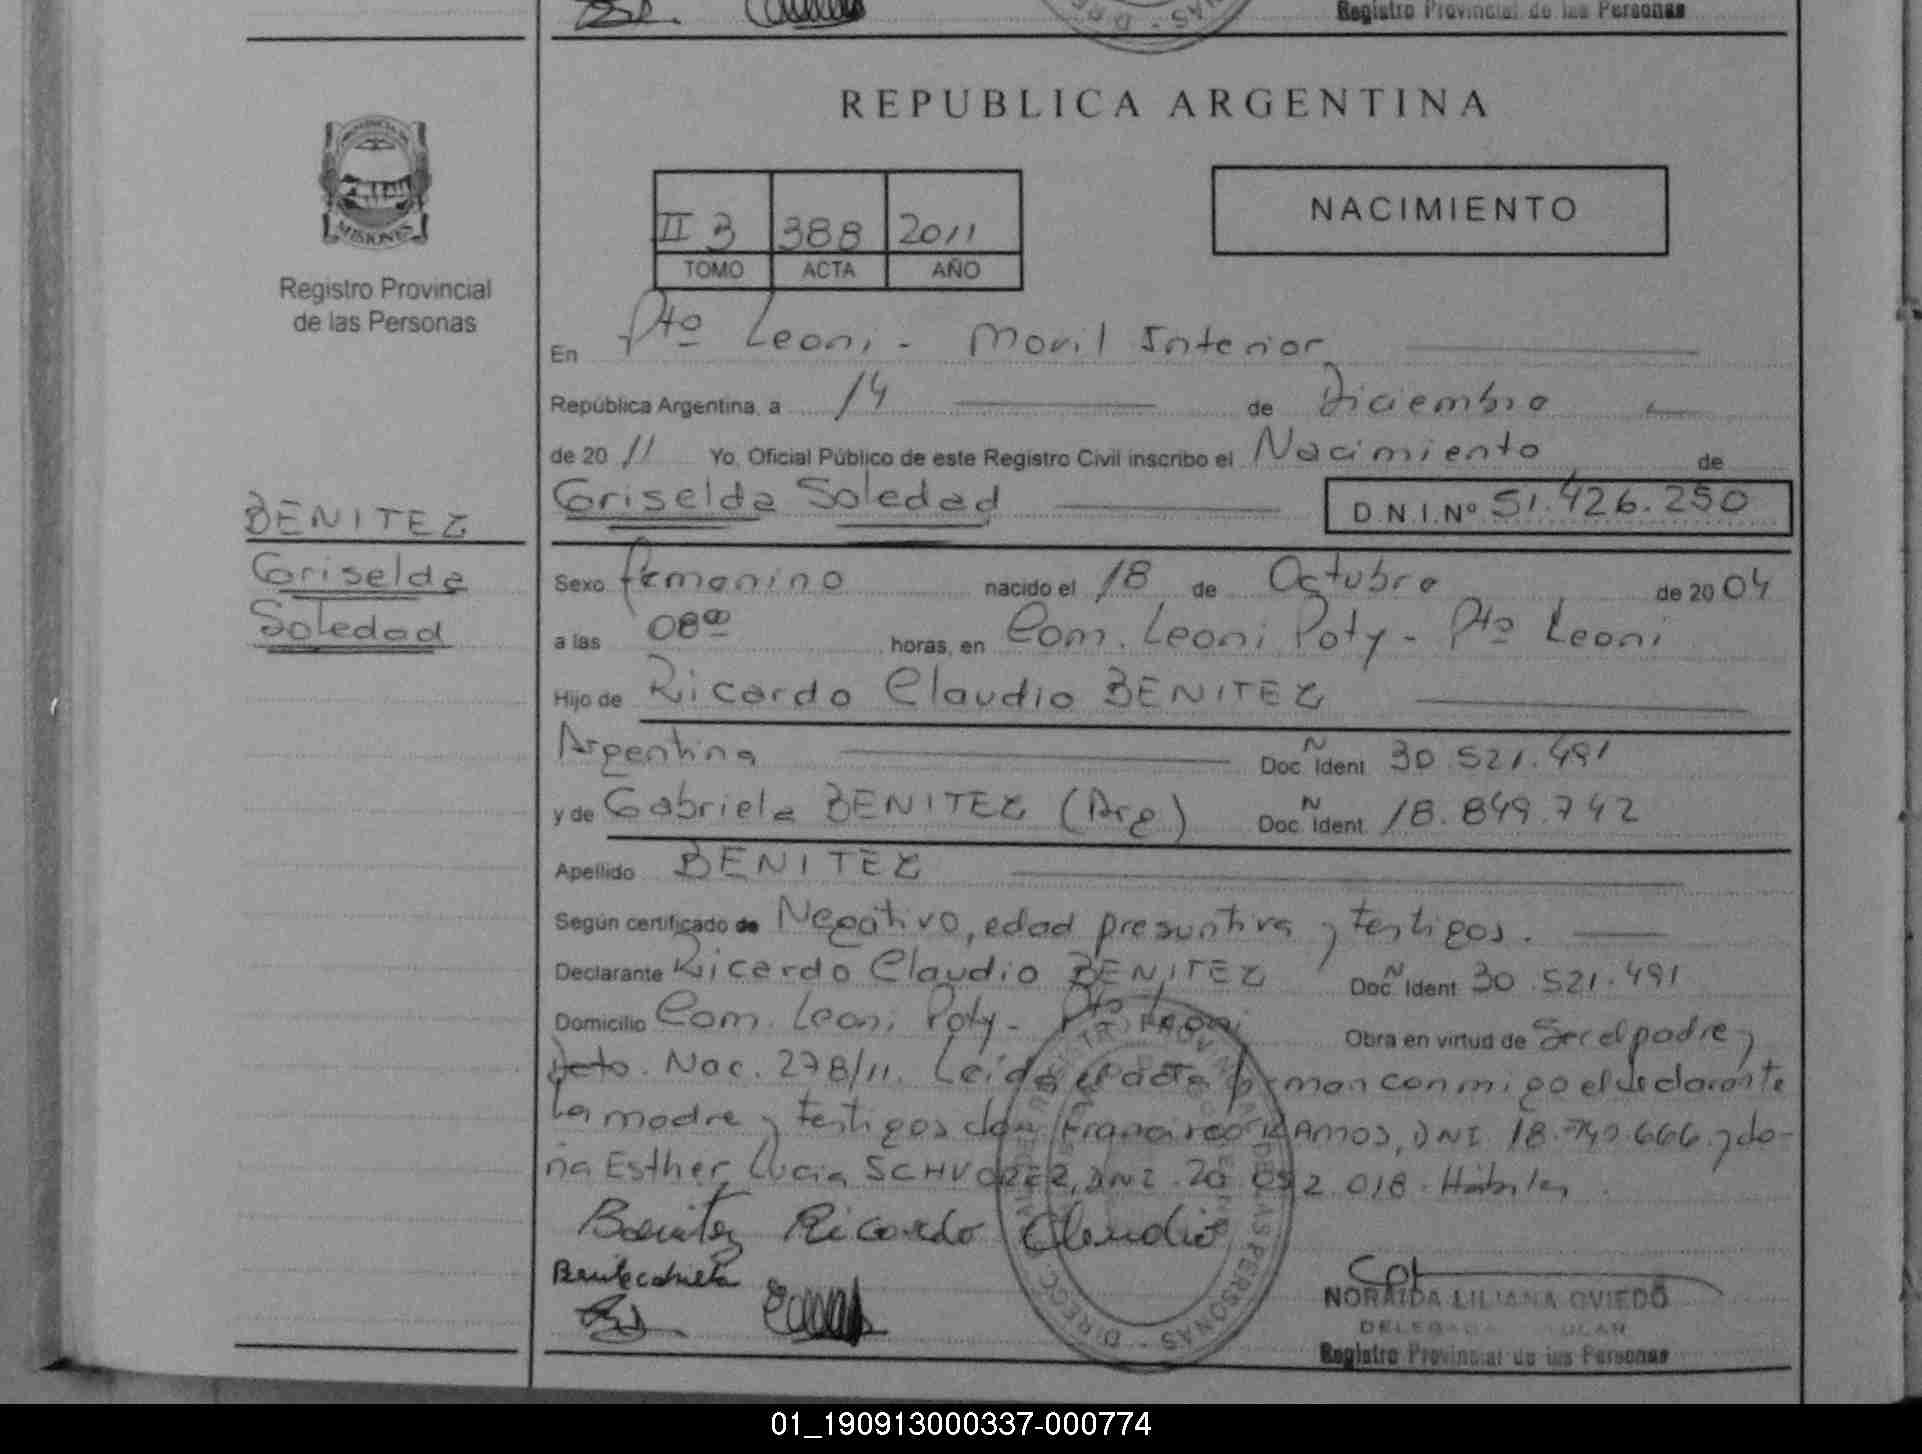 Registro Provincial de las Personas
REPUBLICA ARGENTINA
PROVINCIA DE
MISIONES
Registro Provincial
de las Personas
II 3 388 2011
TOMO ACTA AÑO
NACIMIENTO
En Pto Leoni - Movil Interior
República Argentina, a 14 de Diciembre
de 20 11 Yo, Oficial Público de este Registro Civil inscribo el Nacimiento de
Griselda Soledad D.N.I. Nº 51.426.250
BENITEZ
Griselda
Soledad
Sexo femenino nacido el 18 de Octubre de 20 04
a las 08⁰⁰ horas, en Com. Leoni Poty - Pto Leoni
Hijo de Ricardo Claudio BENITEZ
Argentina Doc. N Ident. 30.521.491
y de Gabriela BENITEZ (Arg) Doc. N Ident. 18.849.742
Apellido BENITEZ
Según certificado de Negativo, edad presuntiva y testigos.
Declarante Ricardo Claudio BENITEZ Doc. N Ident. 30.521.491
Domicilio Com. Leoni Poty - Pto Leoni Obra en virtud de Ser el padre y
Dcto. Nac. 278/11. Leida el acta firman conmigo el declarante
La madre y testigos don Francisco RAMOS, DNI 18. 666 y do-
ña Esther Lucia SCHVOREZ, DNI. 20 052 018. Hábiles
Benitez Ricardo Claudio
NORAIDA LILIANA OVIEDO
DELEGADA TITULAR
Registro Provincial de las Personas
01_190913000337-000774